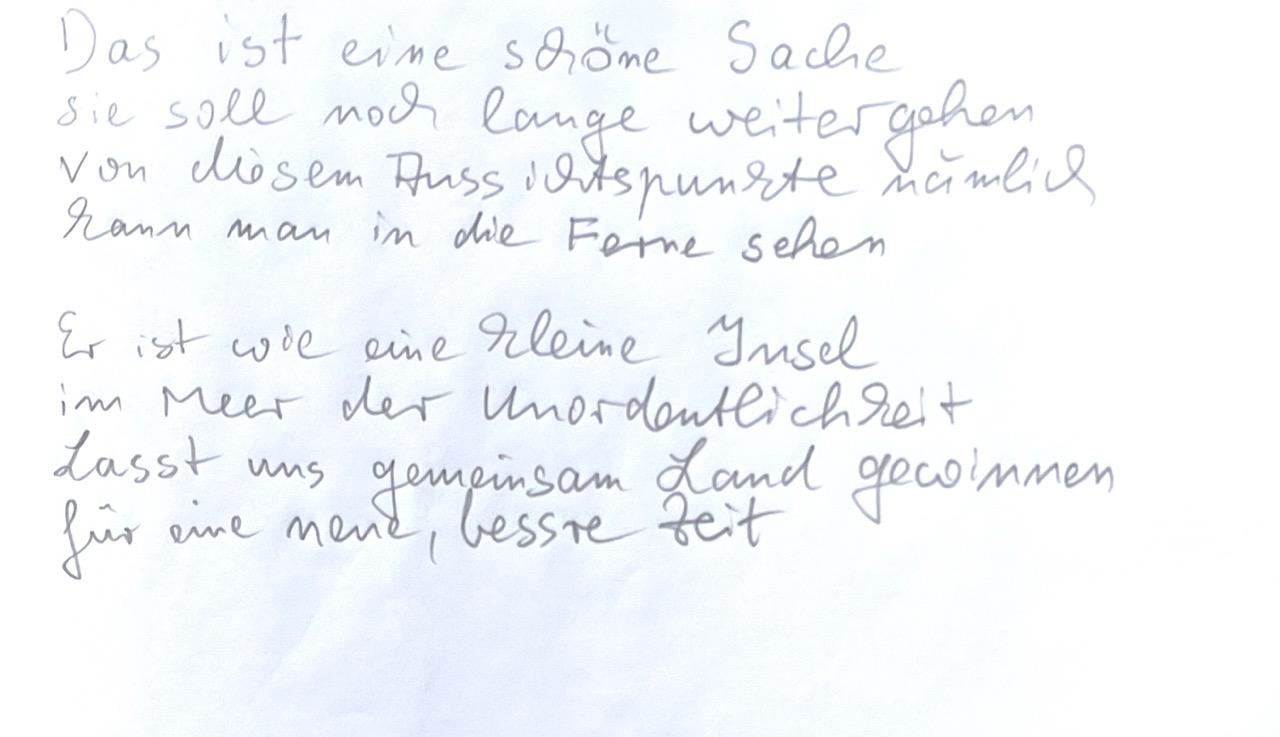 Das ist eine schöne Sache
sie soll noch lange weitergehen
von diesem Aussichtspunkte nämlich
kann man in die Ferne sehen
Er ist wie eine kleine Insel
im Meer der Unordentlichkeit
Lasst uns gemeinsam Land gewinnen
für eine neue, bessre Zeit